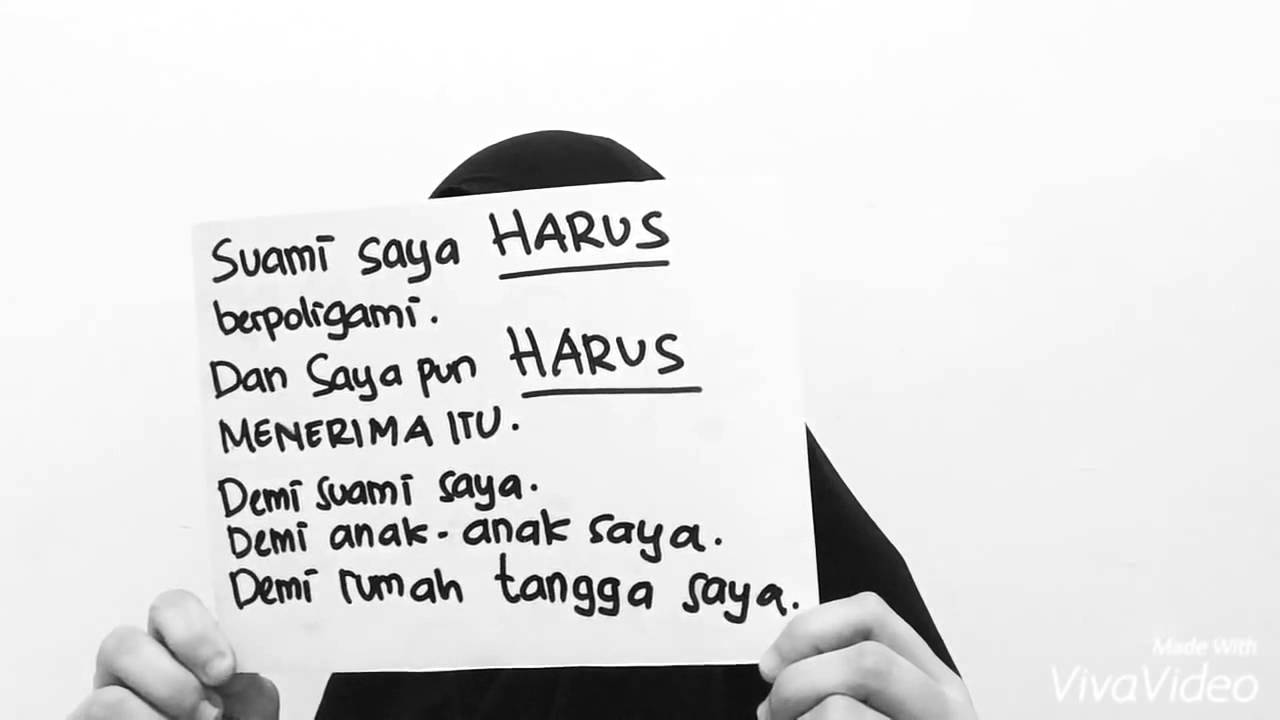 Suami saya HARUS
berpoligami.
Dan Saya pun HARUS
MENERIMA ITU.
Demi suami saya.
Demi anak-anak saya.
Demi rumah tangga saya.
Made With
VivaVideo